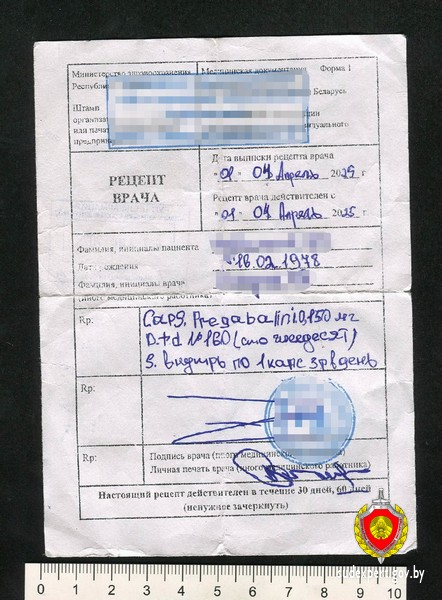 Министерство здравоохранения Медицинская документация Форма 1
Республи Беларусь
Штамп
организа ции
или печат видуального
предприн
РЕЦЕПТ
ВРАЧА
Дата выписки рецепта врача
"01" 04 Апрель 2025 г
Рецепт врача действителен с
"01" 04 Апрель 2025 г
Фамилия, инициалы пациента
Дата рождения 16.02.1978
Фамилия, инициалы врача
(иного медицинского работника)
Rp: Caps. Pregabalini 0,150 мг
D.t.d №180 (сто шесдесят)
S. внутрь по 1 капс 3 р в день
Rp:
Rp: Подпись врача (иного медицинского
Личная печать врача (иного медицинского работника)
Настоящий рецепт действителен в течение 30 дней, 60 дней
(ненужное зачеркнуть)
sudexpert.gov.by
0 1 2 3 4 5 6 7 8 9 10